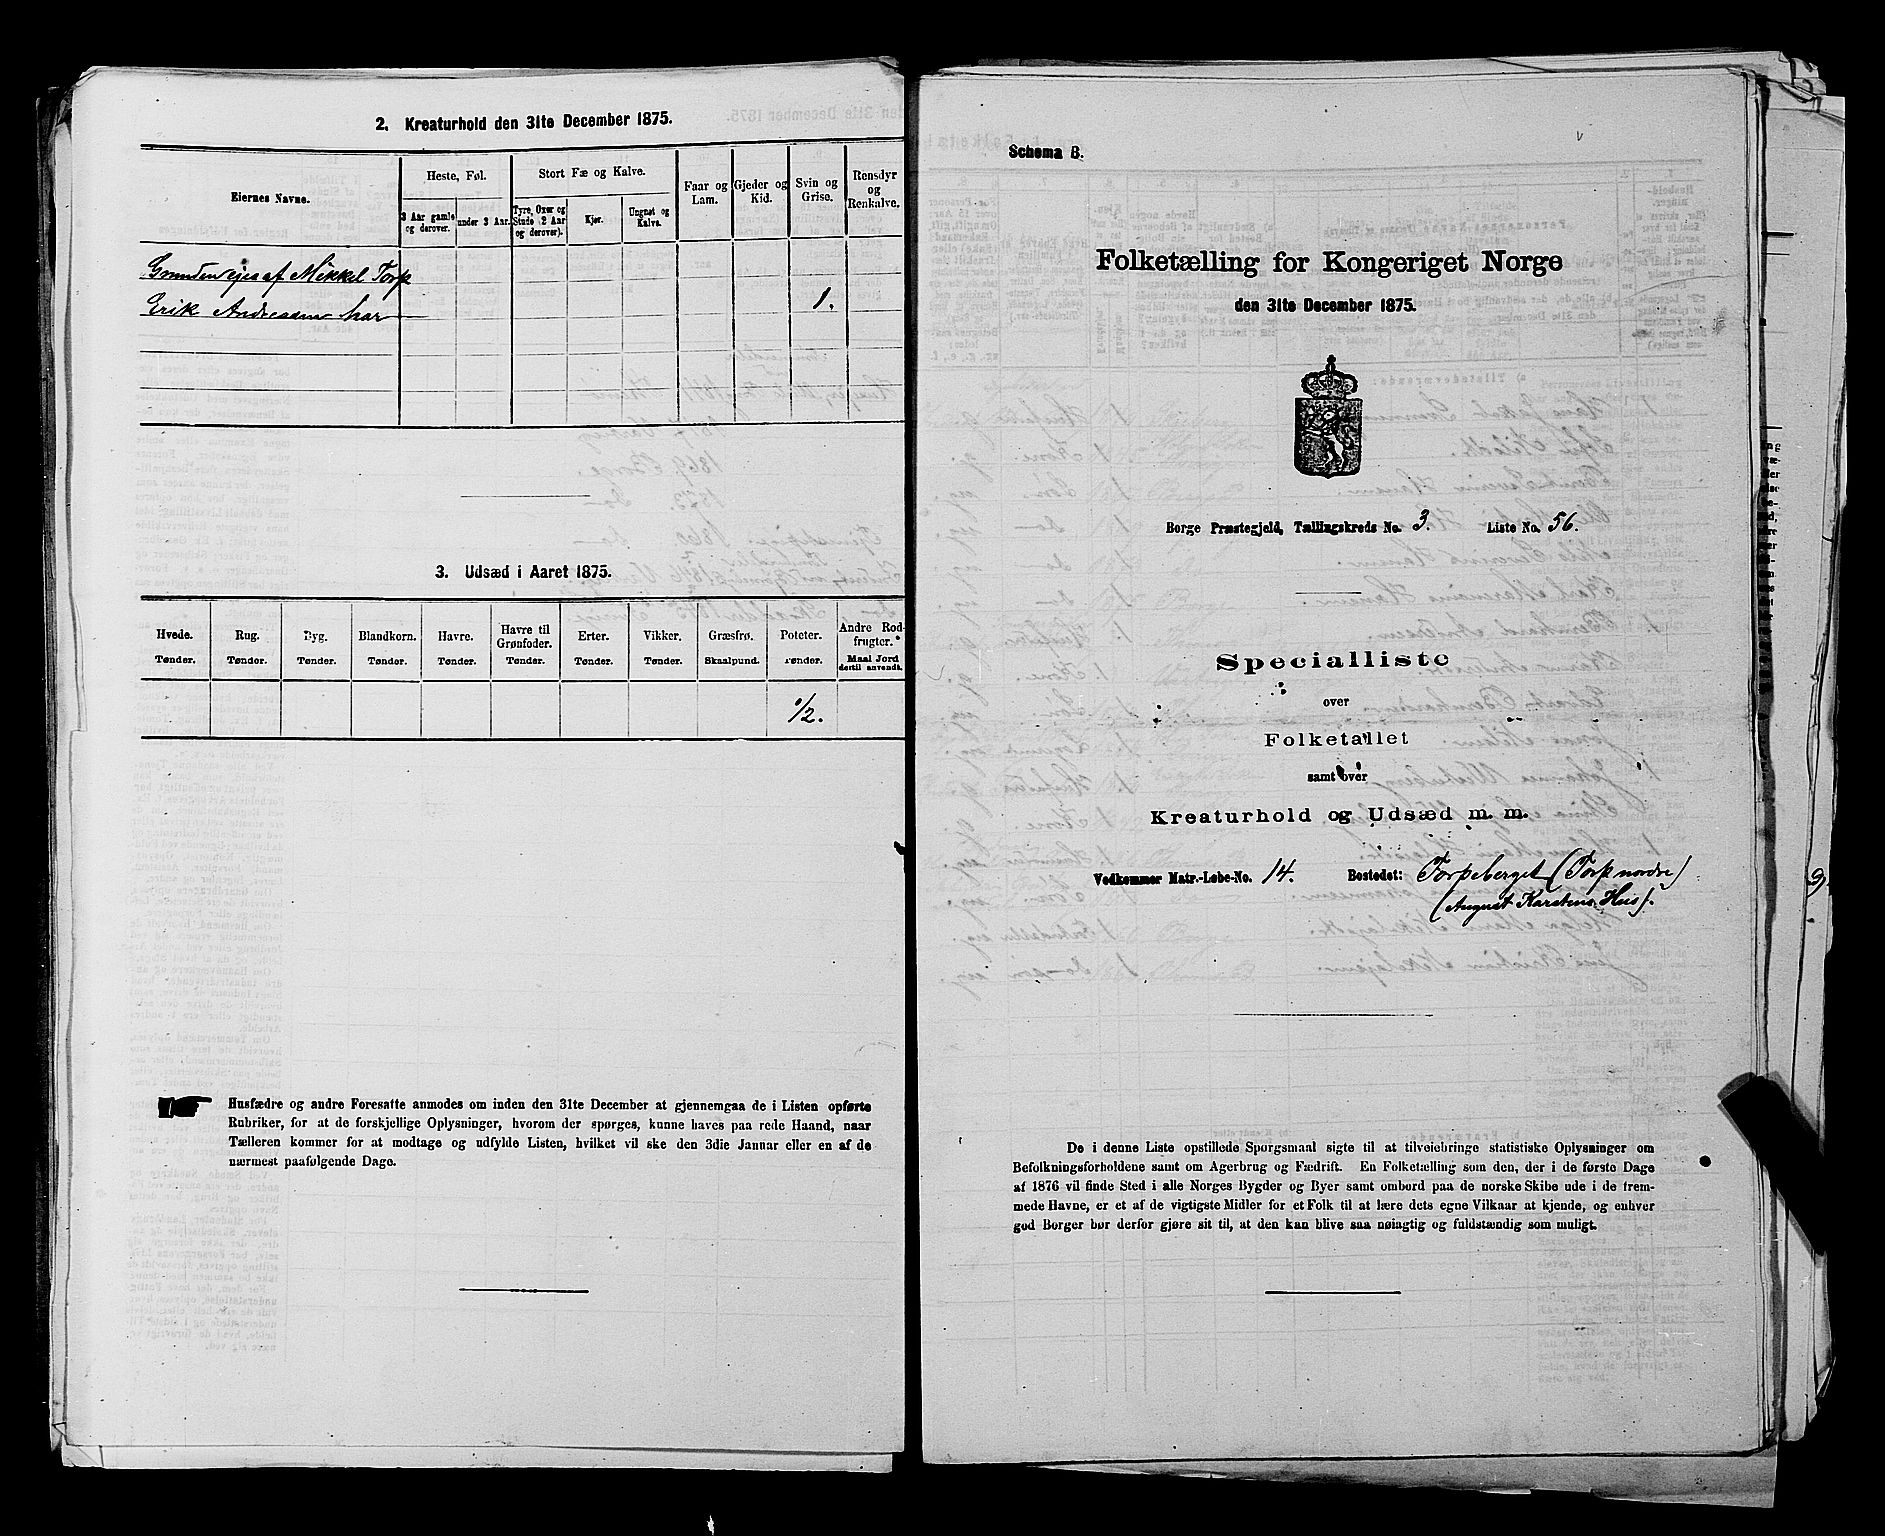 2. Kreaturhold den 31te December 1875.
Eiernes Navne.
Heste, Føl.
3 Aar gamle og derover.
under 3 Aar.
Stort Fæ og Kalve.
Tyre, Oxer og Stude (2 Aar og derover).
Kjør.
Ungnøt og Kalve.
Faar og Lam.
Gjeder og Kid.
Svin og Grise.
Rensdyr og Renkalve.
Grunden ejes af Mikkel Torp
Erik Andreassen har 1.
3. Udsæd i Aaret 1875.
Hvede. Rug. Byg. Blandkorn. Havre. Havre til Grønfoder. Erter. Vikker. Græsfrø. Poteter. Andre Rodfrugter.
Tønder. Tønder. Tønder. Tønder. Tønder. Tønder. Tønder. Tønder. Skaalpund. Tønder. Maal Jord dertil anvendt.
1/2.
Husfædre og andre Foresatte anmodes om inden den 31te December at gjennemgaa de i Listen opførte
Rubriker, for at de forskjellige Oplysninger, hvorom der spørges, kunne haves paa rede Haand, naar
Tælleren kommer for at modtage og udfylde Listen, hvilket vil ske den 3die Januar eller en af de
nærmest paafølgende Dage.
Schema B.
Folketælling for Kongeriget Norge
den 31te December 1875.
Borge Præstegjeld, Tællingskreds No. 3. Liste No. 56.
Specialliste
over
Folketallet
samt over
Kreaturhold og Udsæd m. m.
Vedkommer Matr.-Løbe-No. 14. Bostedet: Torpeberget (Torp nordre)
(August Karstens Hus).
De i denne Liste opstillede Spørgsmaal sigte til at tilveiebringe statistiske Oplysninger om
Befolkningsforholdene samt om Agerbrug og Fædrift. En Folketælling som den, der i de første Dage
af 1876 vil finde Sted i alle Norges Bygder og Byer samt ombord paa de norske Skibe ude i de frem-
mede Havne, er et af de vigtigste Midler for et Folk til at lære dets egne Vilkaar at kjende, og enhver
god Borger bør derfor gjøre sit til, at den kan blive saa nøiagtig og fuldstændig som muligt.